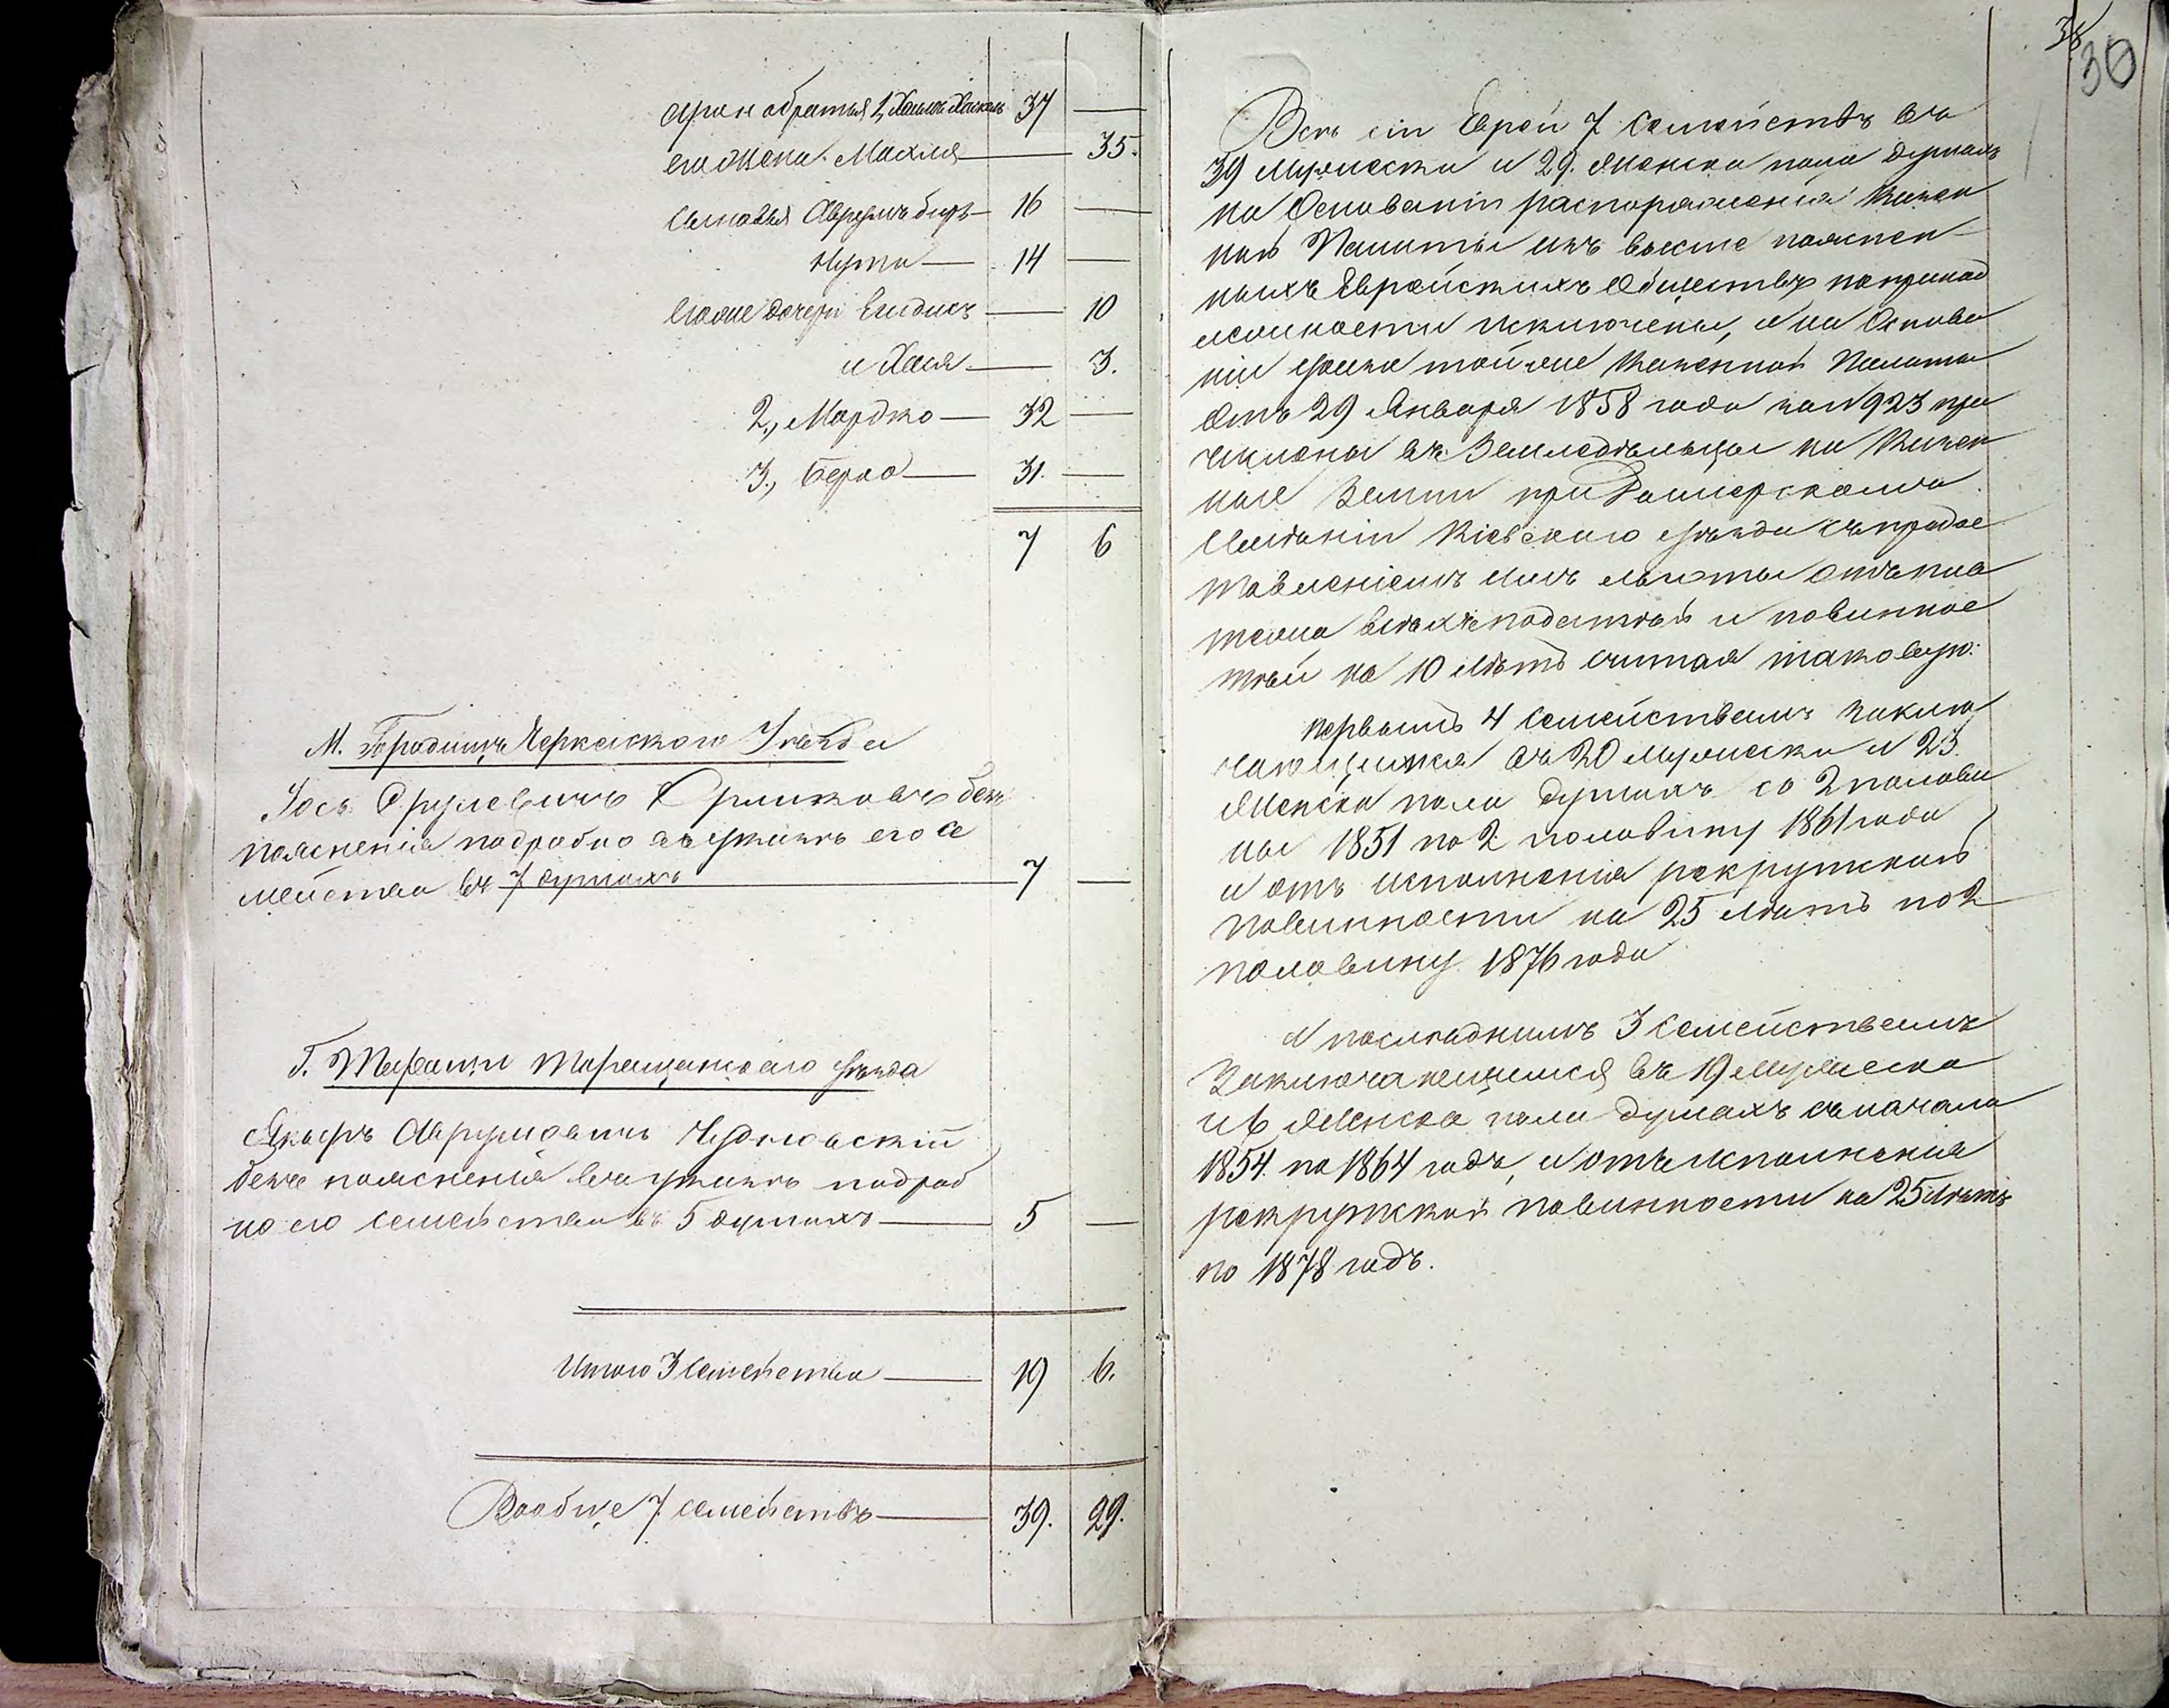 его жена Махля — 35.
сыновья Аврумъ беръ — 16 —
Нута — 14 —
его же дочери — 10
и Хая — 3.
2., Мордко — 32 —
3., Берко — 31. —
7 6
М. Черкаскаго Уезда
Іось Срулевичъ безъ
поясненія подробно въ указѣ его се
мейства въ 7 душахъ — 7 —
Г. Таращи Таращанскаго уезда
Аврумовичъ Чудновскій
безъ поясненія въ указѣ подроб
но его семейства въ 5 душахъ — 5 —
Итого 3 семейства — 19 6.
Вообще 7 семействъ — 39. 29.
30
Всѣ сіи Евреи 7 семействъ въ
39 мужеска и 29. женска пола душахъ
на основаніи распоряженія Казен
ной Палаты изъ выше пояснен-
ныхъ Еврейскихъ обществъ по принад
лежности исключены, и на основа
ніи указа той же Казенной Палаты
отъ 29 Января 1858 года за N 923 при
числены въ Земледѣльцы на Казен
ной Земли при
Имѣніи Кіевскаго уѣзда съ предос
тавленіемъ имъ льготы отъ пла
тежа всѣхъ податей и повиннос
тей на 10 лѣтъ считая таковую:
первымъ 4 семействамъ заклю
чающимся въ 20 мужеска и 23
женска пола душахъ со 2 полови
ны 1851 по 2 половину 1861 года
и отъ исполненія рекрутской
повинности на 25 лѣтъ по 2
половину 1876 года
и послѣднимъ 3 семействамъ
заключающимся въ 19 мужеска
и 6 женска пола душахъ съ начала
1854 по 1864 годъ, и отъ исполненія
рекрутской повинности на 25 лѣтъ
по 1878 годъ.